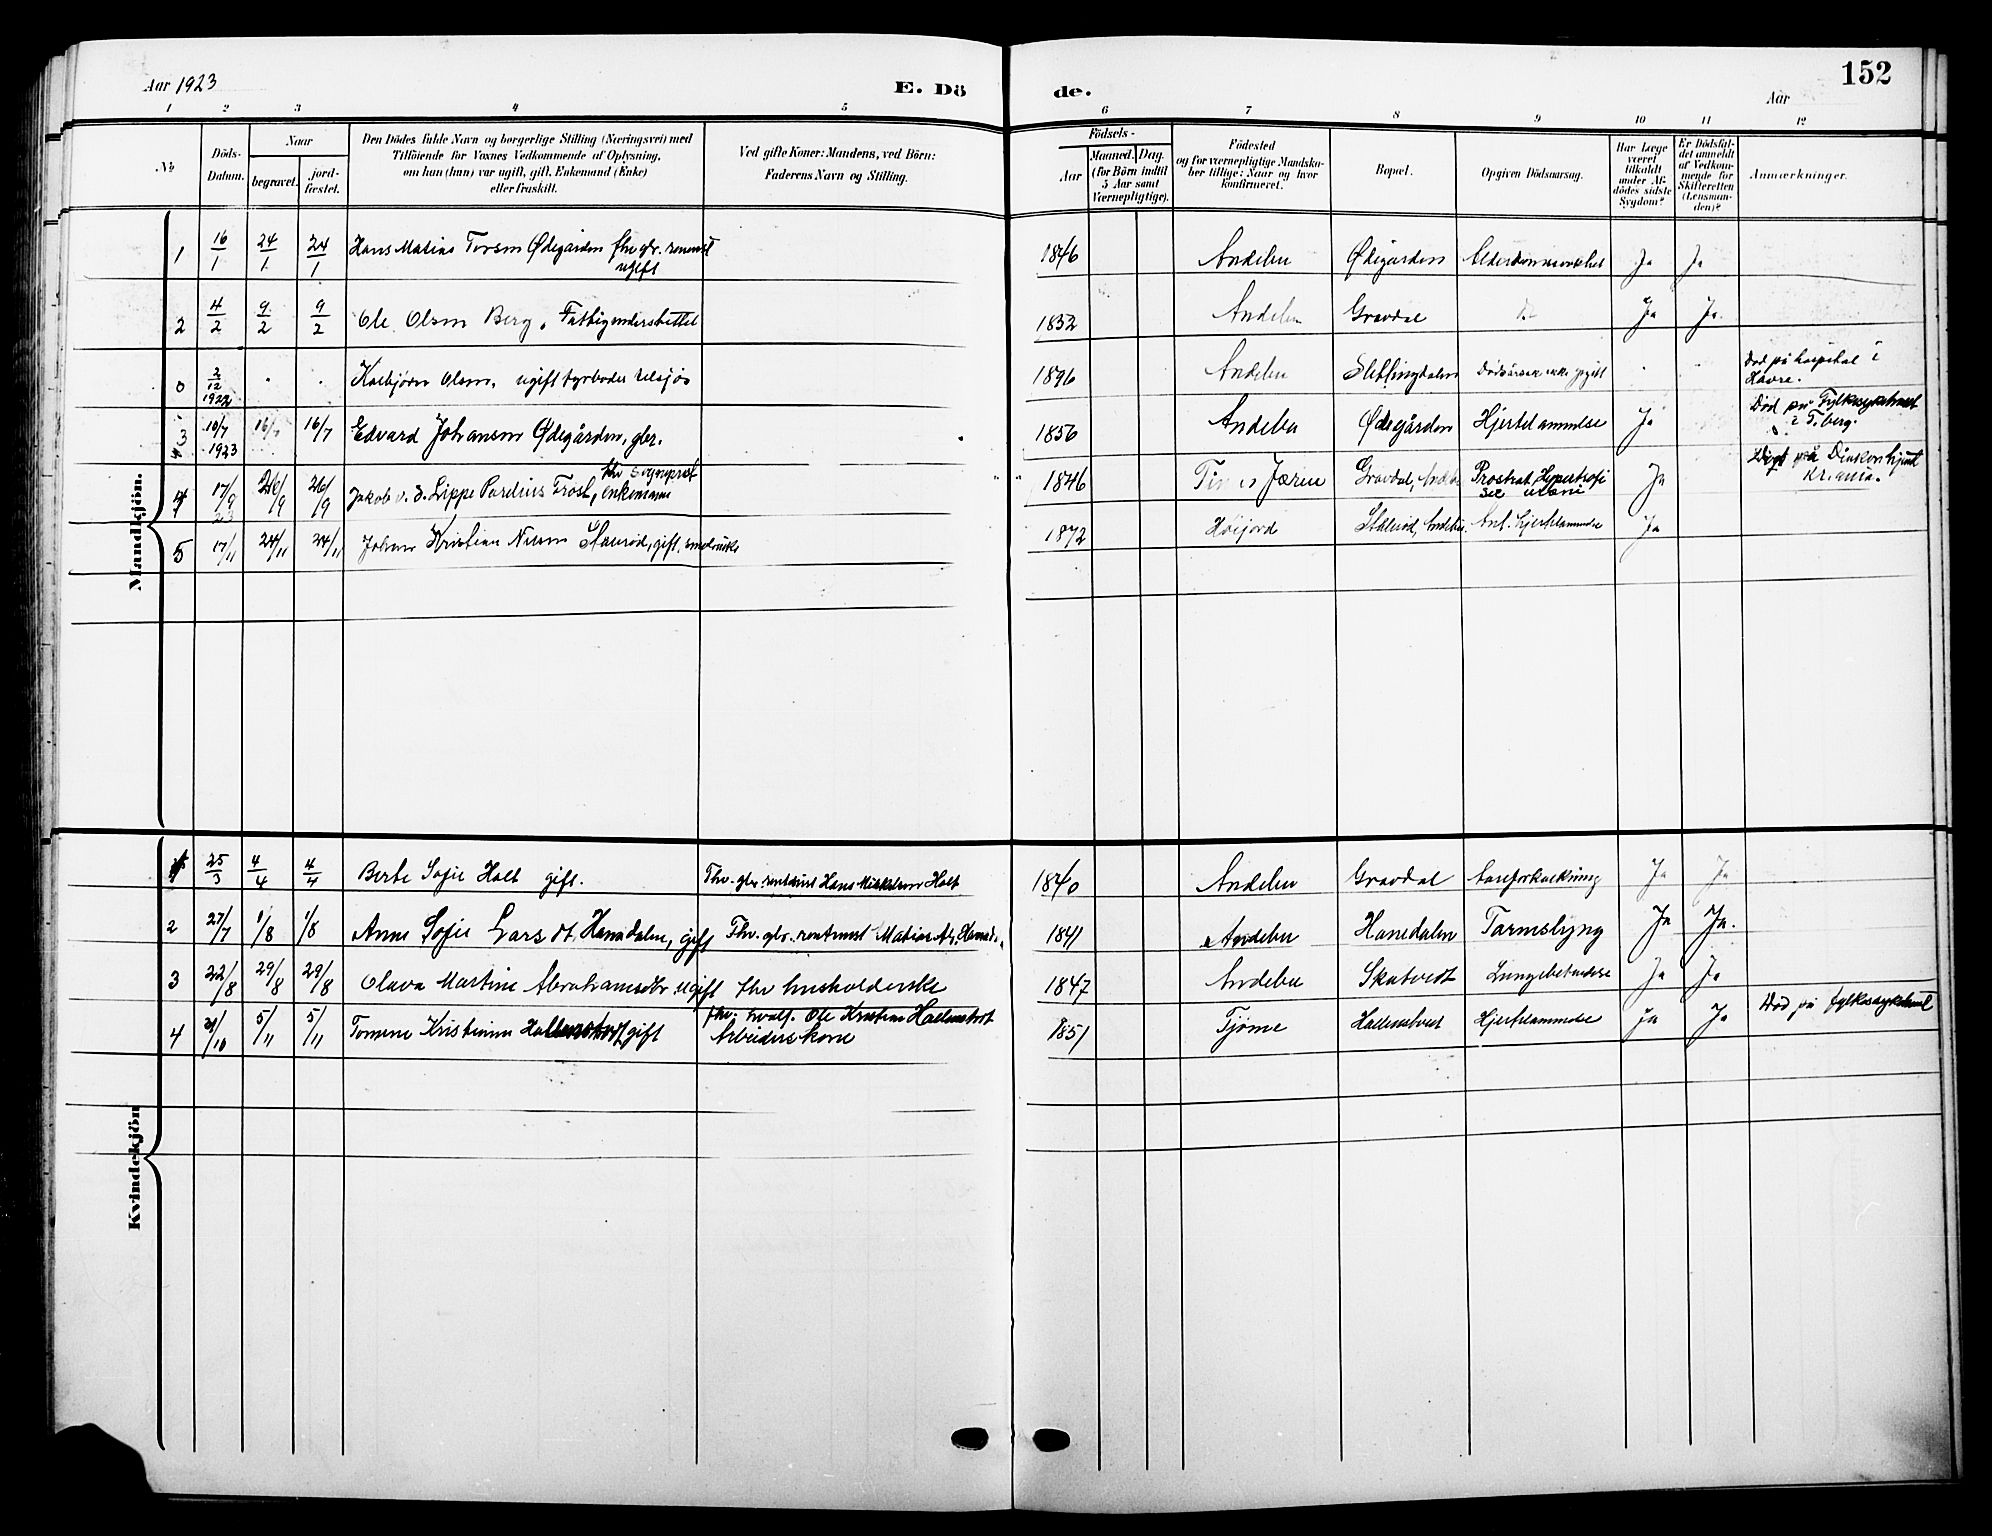 Aar 1923
E. Dö de.
152
Aar
1 2 3 4 5 6 7 8 9 10 11 12
No
Döds-Datum.
Naar
begravet.
jordfæstet.
Den Dödes fulde Navn og borgerlige Stilling (Næringsvei) med
Tilföiende for Voxnes Vedkommende af Oplysning,
om han (hun) var ugift, gift, Enkemand (Enke)
eller fraskilt.
Ved gifte Koner: Mandens, ved Börn:
Faderens Navn og Stilling.
Födsels-
Aar
Maaned. Dag.
(for Börn indtil
5 Aar samt
Værnepligtige).
Födested
og for værnepligtige Mandska-
ber tillige: Naar og hvor
konfirmeret.
Bopæl.
Opgiven Dödsaarsag.
Har Læge
været
tilkaldt
under Af-
dödes sidste
Sygdom?
Er Dödsfal-
det anmeldt
af Vedkom-
mende for
Skifteretten
(Lensman-
den)?
Anmærkninger.
Mandkjön.
1 16/1 24/1 24/1 Hans Matias Ødegården fhv gbr. ugift 1846 Andebu Ødegården Ja Ja
2 4/2 9/2 9/2 Ole Olsen Berg, Fattigunderstøttet 1832 Andebu Gravdal Do Ja Ja.
0 2/12 1922 Olsen, ugift 1896 Andebu Død på hospital i
Havre.
3 10/7 1923 16/7 16/7 Edvard Johansen Ødegården, gbr. 1856 Andebu Ødegården Hjertelammelse Ja Død på Fylkessykehuset
i Tberg.
4 17/9 23 26/9 26/9 Jakob v. d. Lippe Parelius Trost, fhv sogneprest
enkemann 1846 Jæren Gravdal, Prostrat Hypertrofi Ja Død på Diakonhjemt
Kr.ania.
5 17/11 24/11 24/11 Johan Kristian gift, 1872 Høijord Hjertelammelse Ja
Kvindekjön
1 25/3 4/4 4/4 Berte Sofie Holt gift. Fhv. gbr. Hans Mikkelsen Holt 1840 Andebu Gravdal Aareforkalkning Ja Ja
2 27/7 1/8 1/8 Anne Sofie Larsdt. Hanedalen, gift Fhv. gbr. Matias 1841 Andebu Hanedalen Tarmslyng Ja Ja.
3 22/8 29/8 29/8 Olava Martine Abrahamsdtr ugift fhv husholderske 1847 Andebu Skatvedt Lungebetendelse Ja Ja
4 /10 5/11 5/11 Tomine Kristiane gift fhv. hvalf. Ole Kristian
Arbeiderskone 1851 Tjøme Hjertelammelse Ja Ja Død på fylkessykehuset